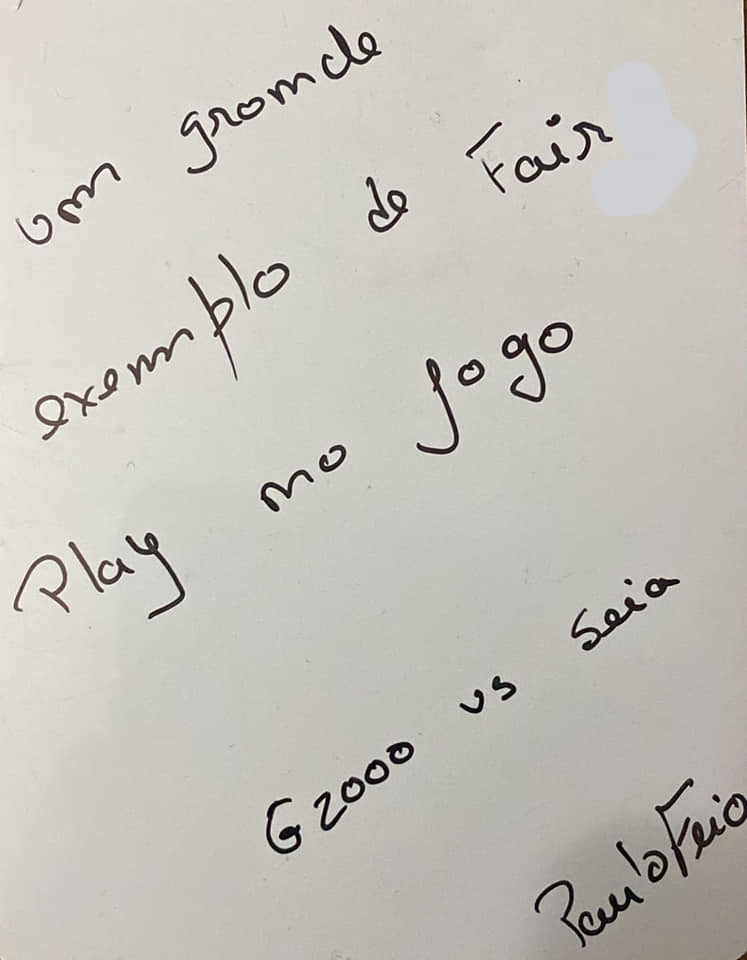 um grande
exemplo de Fair
Play no Jogo
G2000 vs Seia
Paulo Feio